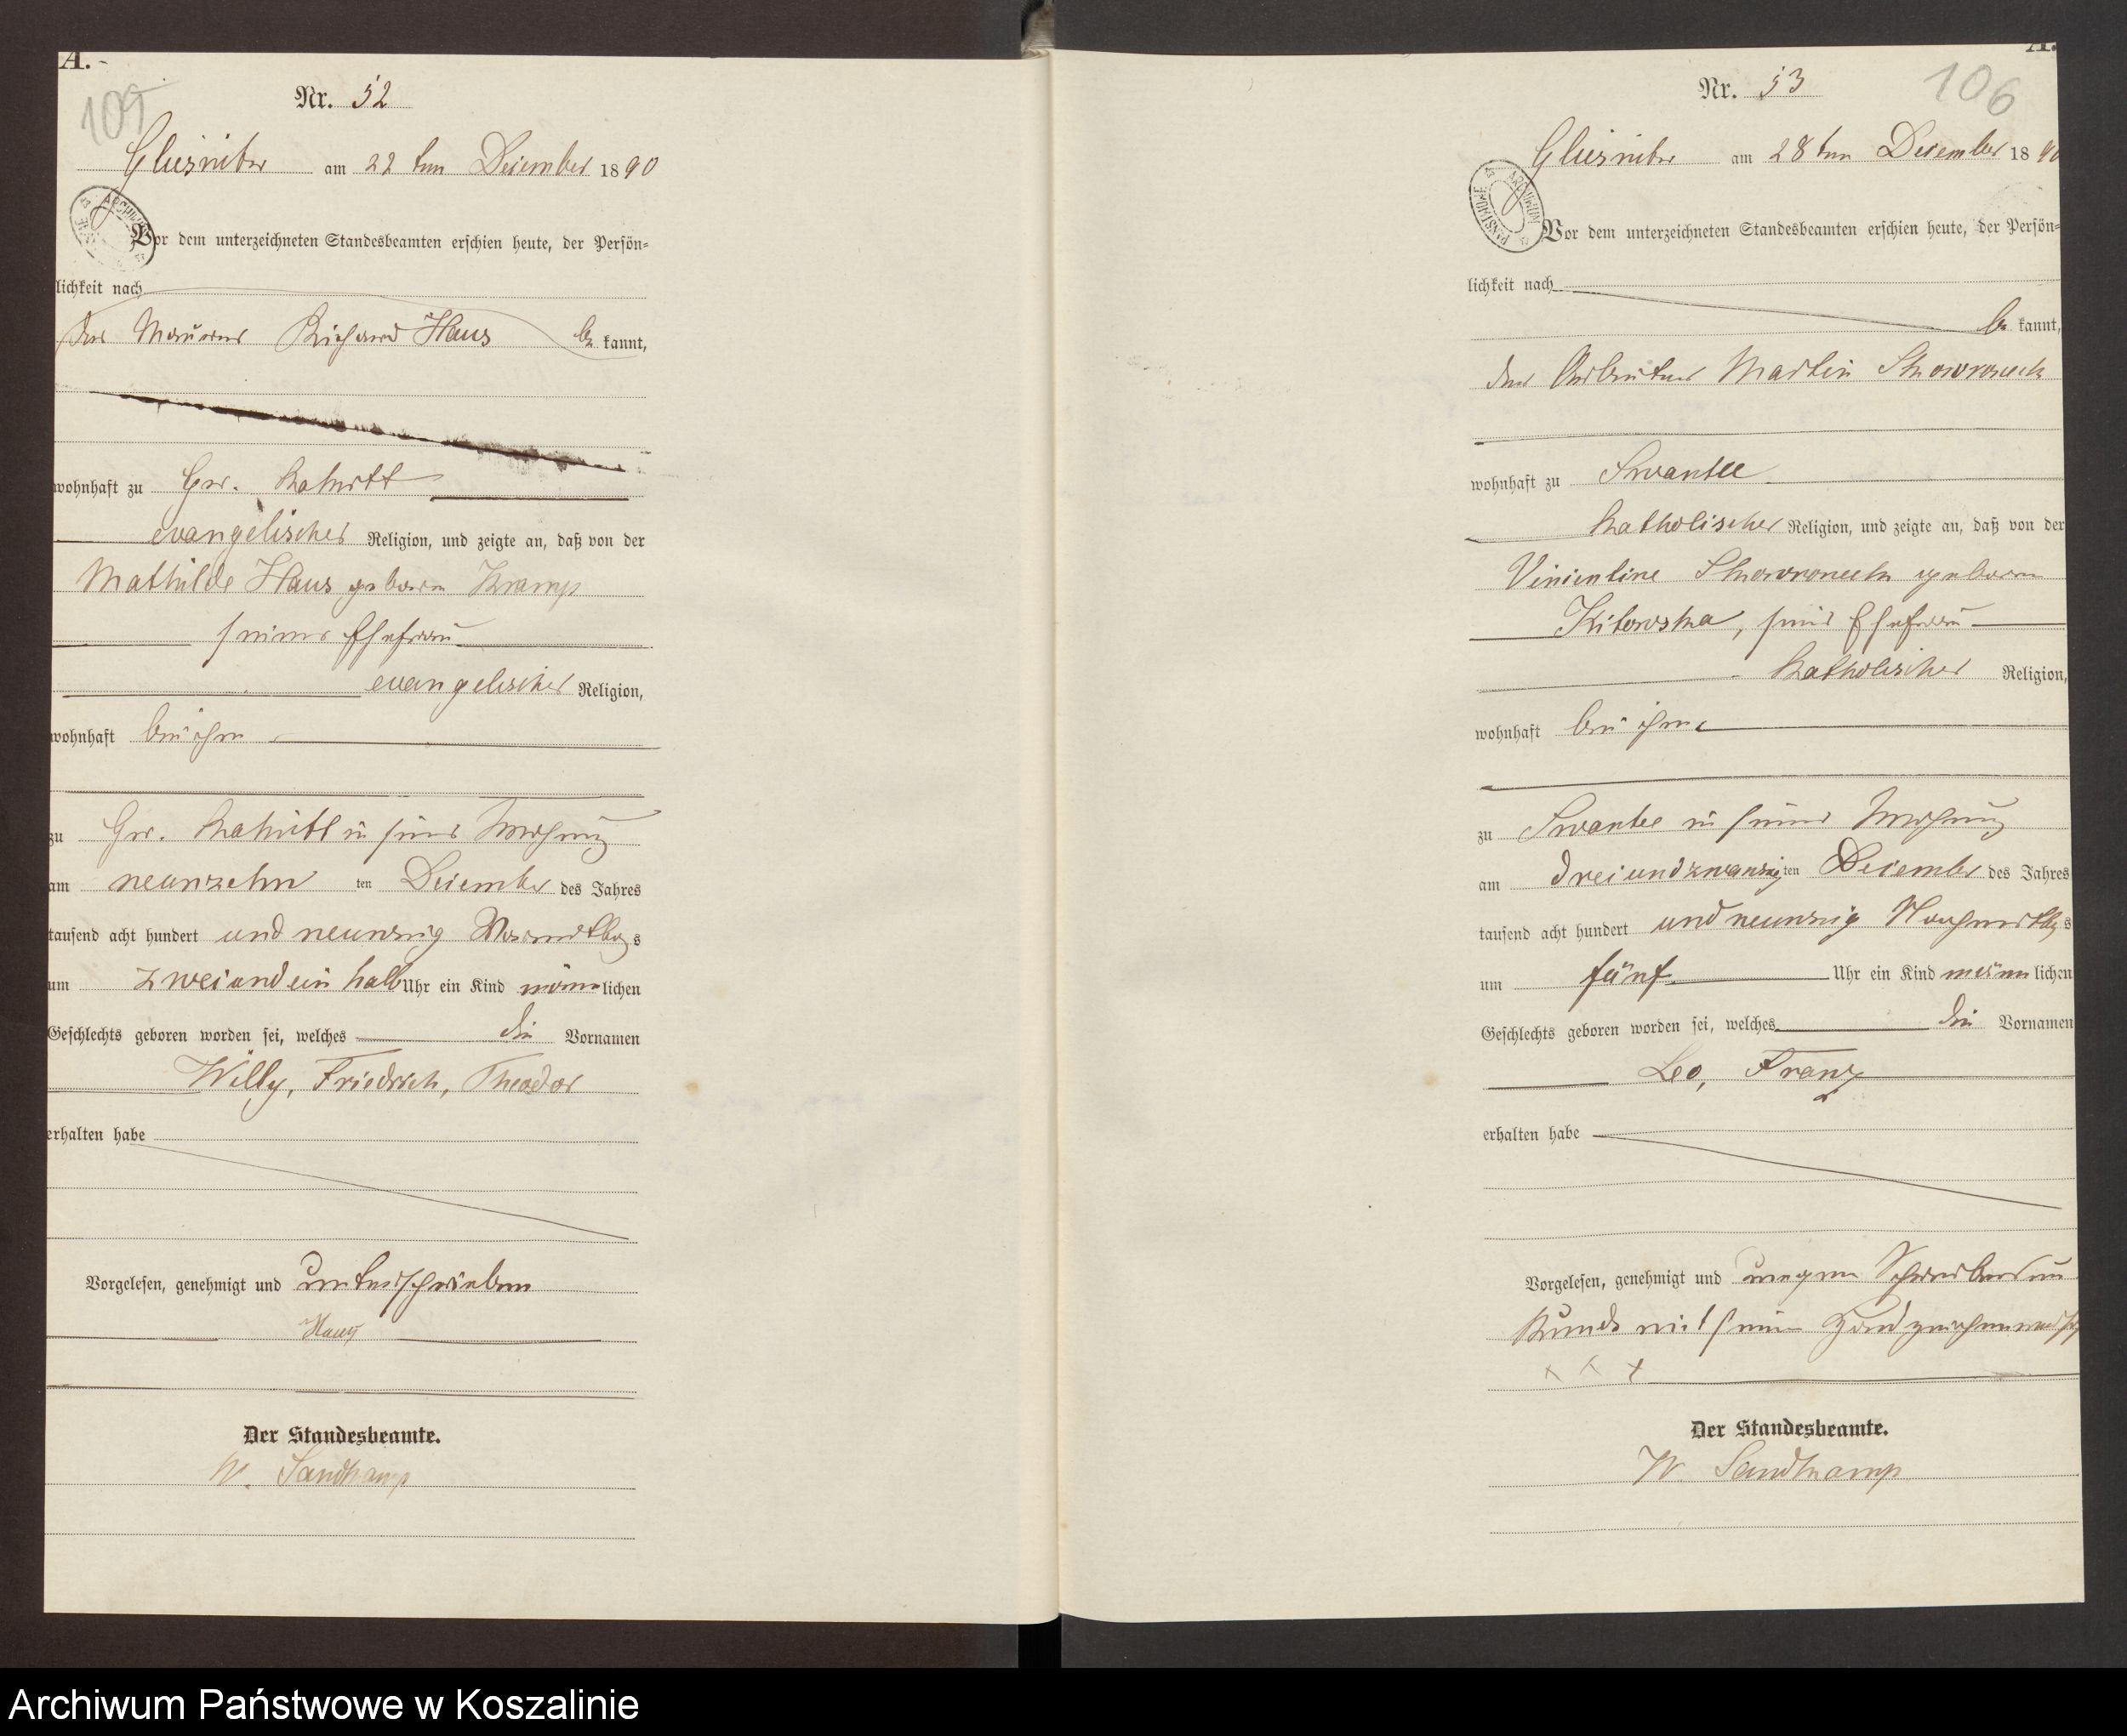 A.
109
Nr. 52
am 22 ten Dezember 1890
Vor dem unterzeichneten Standesbeamten erschien heute, der Persön=
lichkeit nach
der Maurer Richard Haus be kannt,
wohnhaft zu Gr.
evangelischer Religion, und zeigte an, daß von der
Mathilde Haus geborene Kramp
seiner Ehefrau
evangelischer Religion,
wohnhaft bei ihm
zu Gr. in seiner Wohnung
am neunzehn ten Dezember des Jahres
tausend acht hundert und neunzig Vormittags
um zwei und ein halb Uhr ein Kind männlichen
Geschlechts geboren worden sei, welches die Vornamen
Willy, Friedrich, Theodor
erhalten habe
Vorgelesen, genehmigt und unterschrieben
Haus
Der Standesbeamte.
W. Sandkamp
A.
106
Nr. 53
am 28 ten Dezember 1890
ARCHIWUM PAŃSTWOWE
Vor dem unterzeichneten Standesbeamten erschien heute, der Persön=
lichkeit nach
be kannt,
der Arbeiter Martin Skowroneck
wohnhaft zu Swantee
katholischer Religion, und zeigte an, daß von der
Skowroneck geborene
Kitowska, seiner Ehefrau
katholischer Religion,
wohnhaft bei ihm
zu Swantee in seiner Wohnung
am dreiundzwanzig ten Dezember des Jahres
tausend acht hundert und neunzig Nachmittags
um fünf Uhr ein Kind männlichen
Geschlechts geboren worden sei, welches die Vornamen
Leo, Franz
erhalten habe
Vorgelesen, genehmigt und wegen Schreibensun
kunde mit seinem Handzeichen
x x x
Der Standesbeamte.
W. Sandkamp
Archiwum Państwowe w Koszalinie